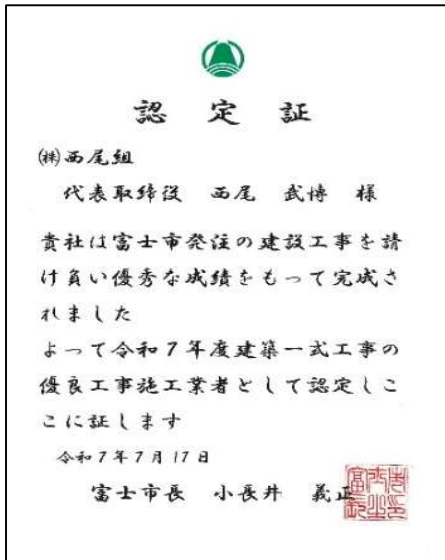 認定証
㈱西尾組
代表取締役 西尾 武博 様
貴社は富士市発注の建設工事を請
け負い優秀な成績をもって完成さ
れました
よって令和7年度建築一式工事の
優良工事施工業者として認定しこ
こに証します
令和7年7月17日
富士市長 小長井 義正